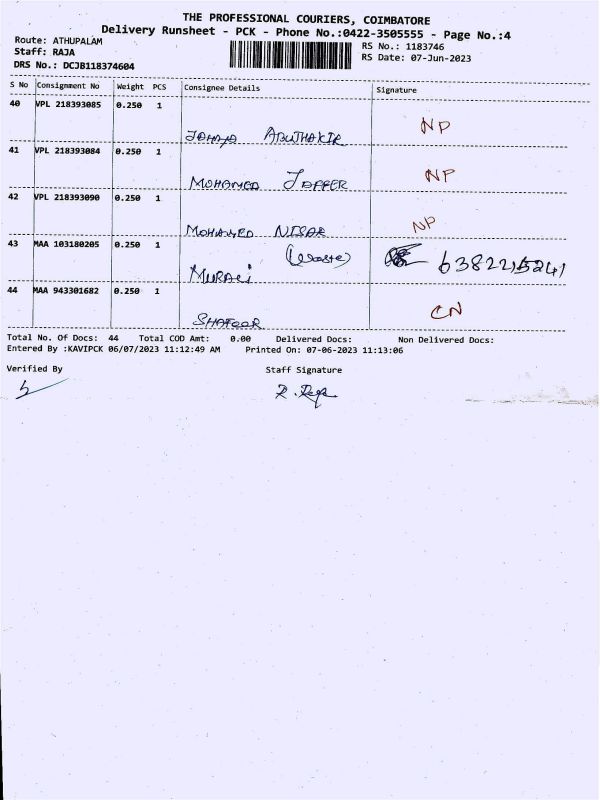 THE PROFESSIONAL COURIERS, COIMBATORE
Delivery Runsheet - PCK - Phone No.:0422-3505555 - Page No.:4
Route: ATHUPALAM
Staff: RAJA
DRS No.: DCJB118374604
RS No.: 1183746
RS Date: 07-Jun-2023
S No Consignment No Weight PCS Consignee Details Signature
40 VPL 218393085 0.250 1
ABUTHAKIR NP
41 VPL 218393084 0.250 1
MOHAMED JAFFER NP
42 VPL 218393090 0.250 1
MOHAMED NISAR NP
43 MAA 103180205 0.250 1
MURALI
44 MAA 943301682 0.250 1
CN
Total No. Of Docs: 44 Total COD Amt: 0.00 Delivered Docs: Non Delivered Docs:
Entered By :KAVIPCK 06/07/2023 11:12:49 AM Printed On: 07-06-2023 11:13:06
Verified By Staff Signature